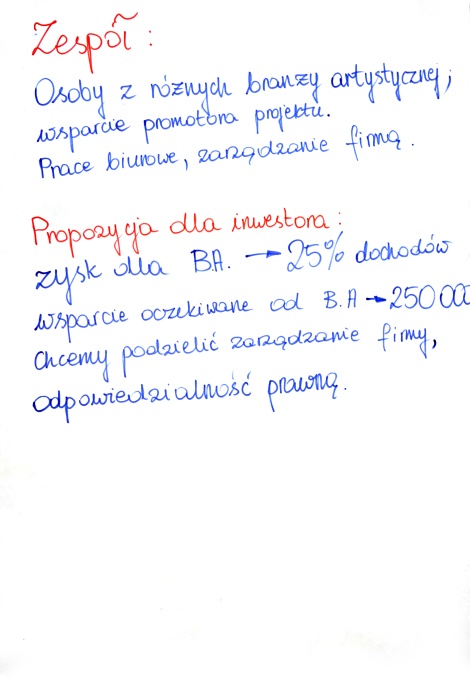 Zespół:
Osoby z różnych branży artystycznej;
wsparcie promotora projektu.
Prace biurowe, zarządzanie firmą.
Propozycja dla inwestora:
zysk dla B.A. → 25% dochodów
wsparcie oczekiwane od B.A → 250 000
Chcemy podzielić zarządzanie firmy,
odpowiedzialność prawną.